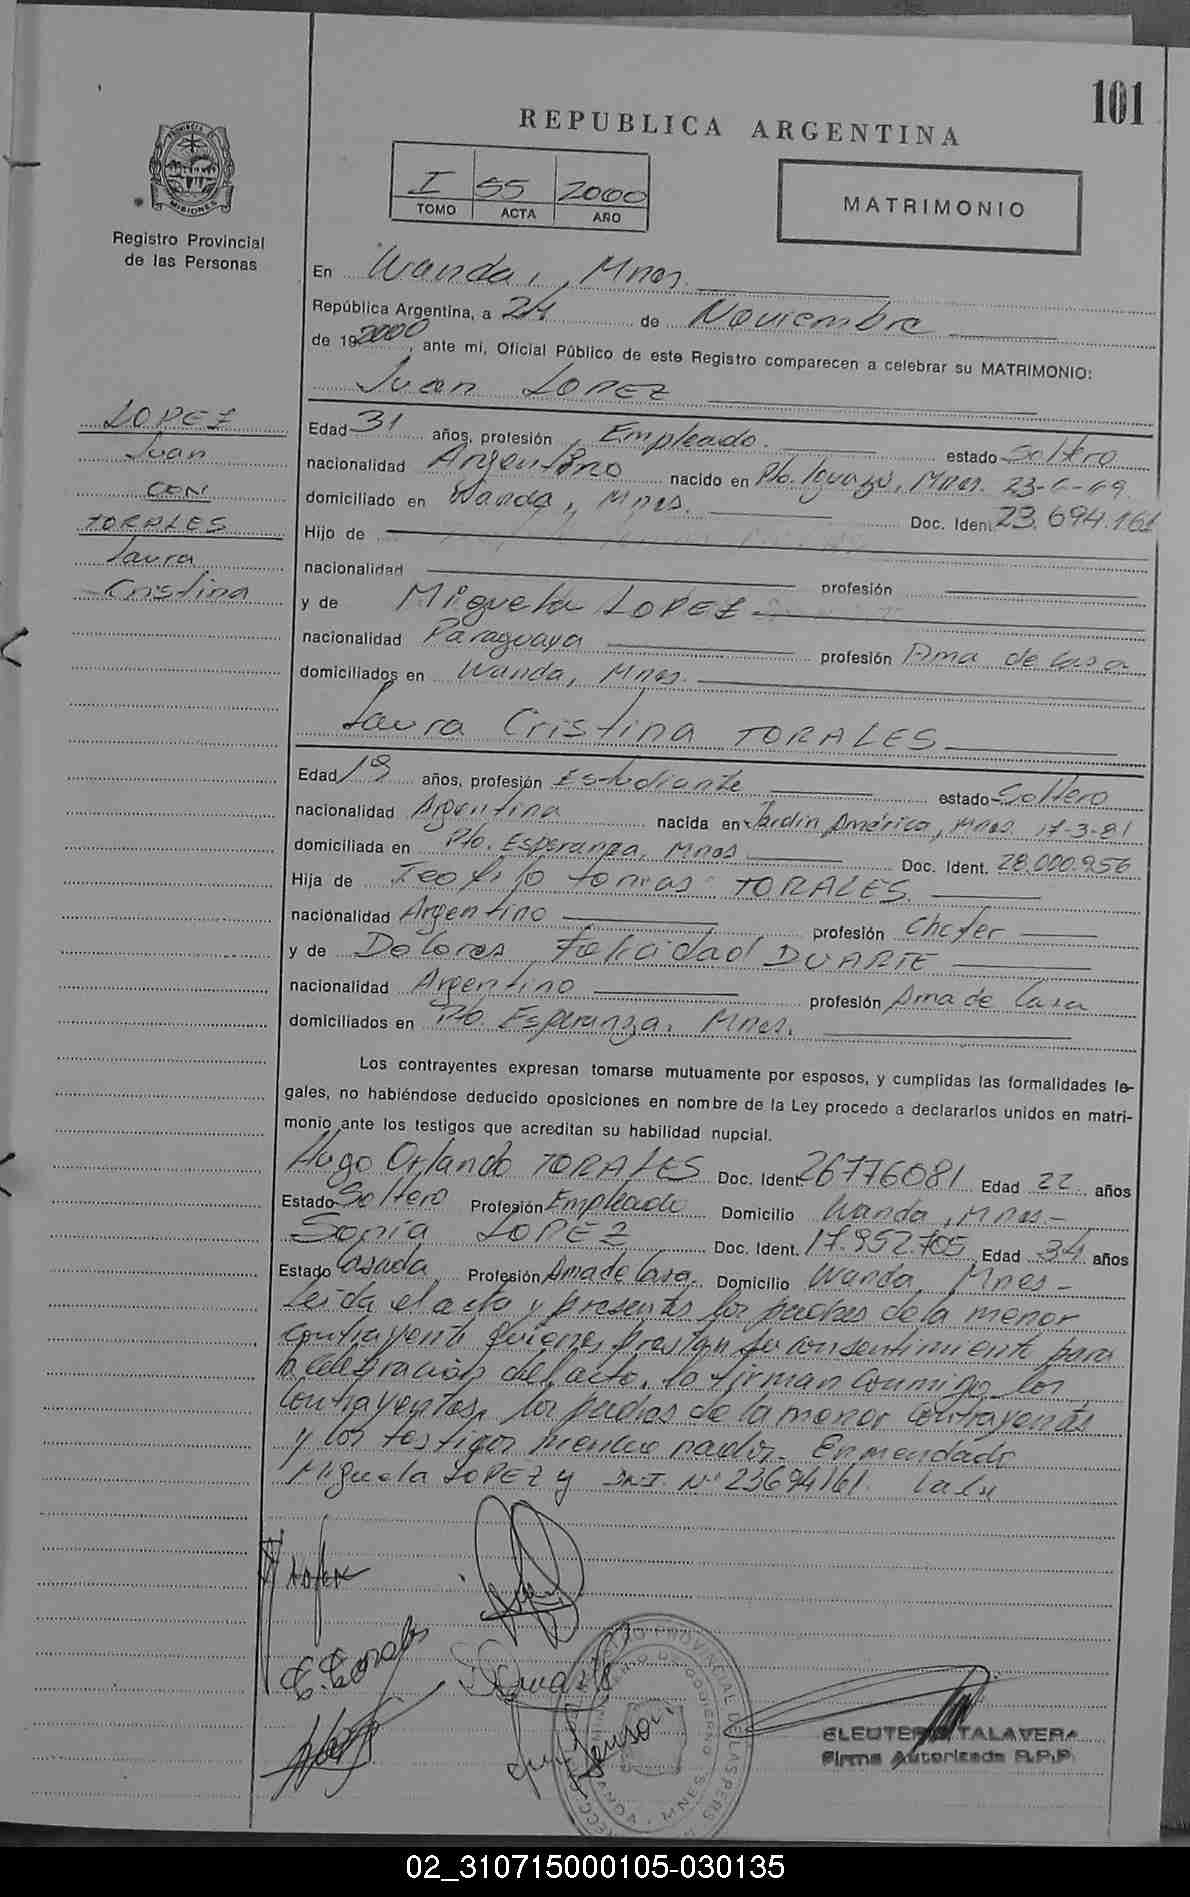 101
REPUBLICA ARGENTINA
I 55 2000
TOMO ACTA AÑO
MATRIMONIO
PROVINCIA DE
MISIONES
Registro Provincial
de las Personas
LOPEZ
Juan
CON
TORALES
Laura
Cristina
En Wanda, Mnes.
República Argentina, a 24 de Noviembre
de 192000, ante mi, Oficial Público de este Registro comparecen a celebrar su MATRIMONIO:
Juan LOPEZ
Edad 31 años, profesión Empleado. estado Soltero
nacionalidad Argentino nacido en Pto. Iguazú, Mnes. 23-6-69
domiciliado en Wanda, Mnes. Doc. Ident. 23.694.161
Hijo de
nacionalidad profesión
y de Miguela LOPEZ
nacionalidad Paraguaya profesión Ama de Casa
domiciliados en Wanda, Mnes.
Laura Cristina TORALES
Edad 19 años, profesión Estudiante estado Soltero
nacionalidad Argentina nacida en Jardin América, Mnes. 17-3-81
domiciliada en Pto. Esperanza, Mnes Doc. Ident. 28.000.956
Hija de Teofilo Tomas TORALES.
nacionalidad Argentino profesión Chofer
y de Dolores Felicidad DUARTE
nacionalidad Argentino profesión Ama de Casa
domiciliados en Pto. Esperanza, Mnes.
Los contrayentes expresan tomarse mutuamente por esposos, y cumplidas las formalidades le-
gales, no habiéndose deducido oposiciones en nombre de la Ley procedo a declararlos unidos en matri-
monio ante los testigos que acreditan su habilidad nupcial.
Hugo Orlando TORALES Doc. Ident. 26776081 Edad 22 años
Estado Soltero Profesión Empleado Domicilio Wanda, Mnes-
Sonia LOPEZ Doc. Ident. 17.952.705 Edad 34 años
Estado Casada Profesión Ama de Casa. Domicilio Wanda, Mnes-
Leida el acta y presentes los padres de la menor
contrayente quienes prestan su consentimiento para
la celebración del acto, la firman conmigo los
contrayentes, los padres de la menor contrayente
y los testigos mencionados. Enmendado
Miguela LOPEZ y DNI. Nº 23694161. Vale
ELEUTERIO TALAVERA
Firma Autorizada R.P.P.
02_310715000105-030135